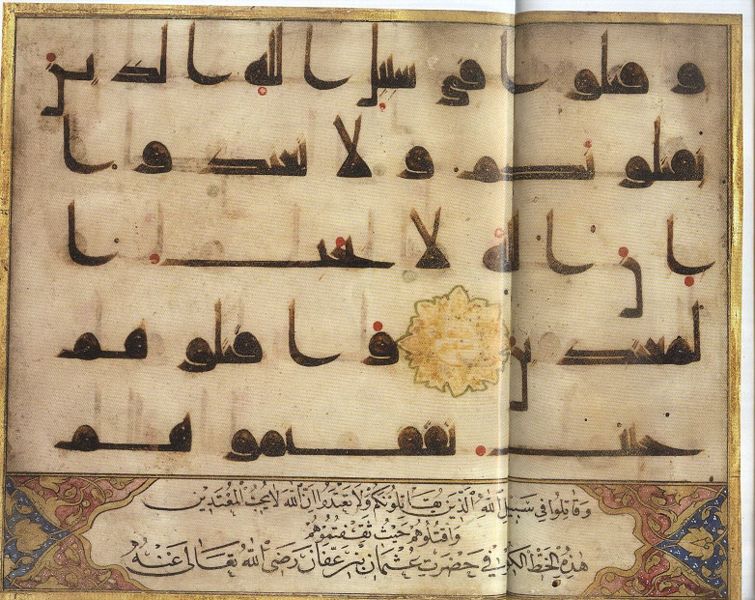 وقتلوا في سبيل الله الذين
يقتلونكم ولا تعتدوا
ان الله لا يحب ا
لمعتدين واقتلوهم
حيث ثقفتموهم
وَقَاتِلُوا فِي سَبِيلِ اللهِ الَّذِينَ يُقَاتِلُونَكُمْ وَلَا تَعْتَدُوا إِنَّ اللهَ لَا يُحِبُّ الْمُعْتَدِينَ
وَاقْتُلُوهُمْ حَيْثُ ثَقِفْتُمُوهُمْ
هٰذِهِ الْخَطُّ الْكوفي حَضْرَتِ عُثْمَانَ بْنِ عَفَّانَ رَضِيَ اللهُ تَعَالَى عَنْهُ